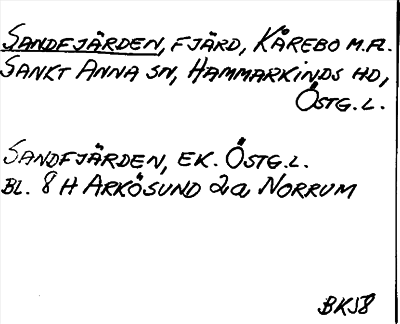 SANDFJÄRDEN, FJÄRD, KÅREBO M.FL.
SANKT ANNA SN, HAMMARKINDS HD,
ÖSTG.L.
SANDFJÄRDEN, EK. ÖSTG.L.
BL. 8 H ARKÖSUND 2a NORRUM
BKJ8